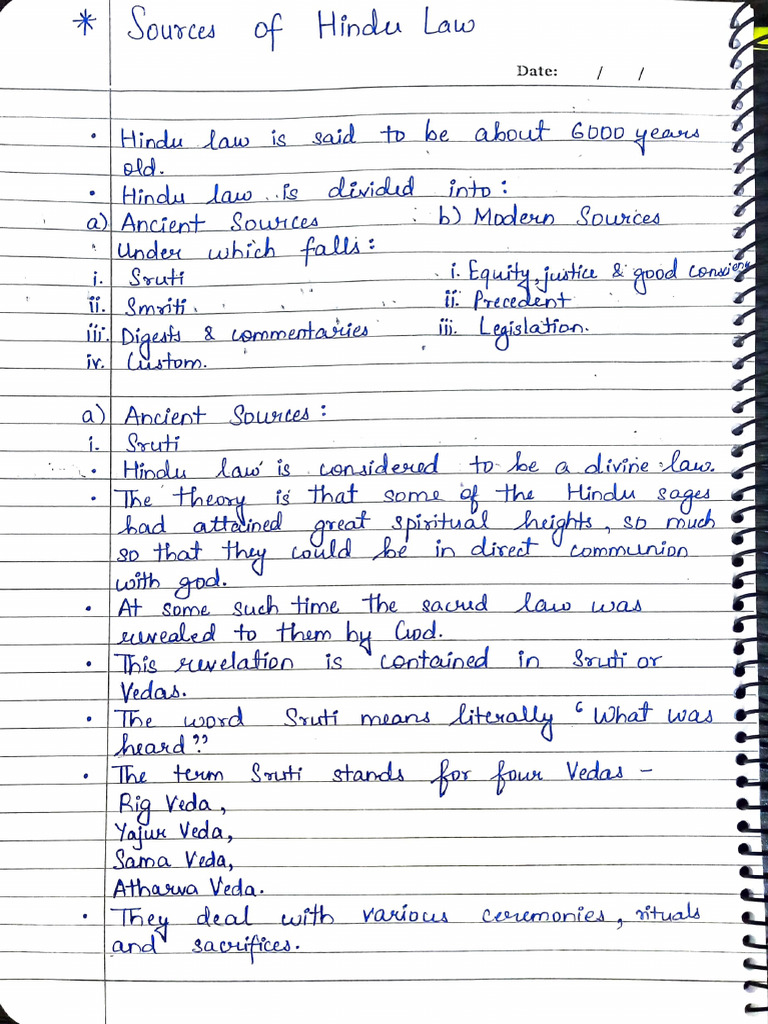 * Sources of Hindu Law
Date: / /
• Hindu law is said to be about 6000 years
old.
• Hindu law is divided into:
a) Ancient Sources b) Modern Sources
Under which falls:
i. Sruti i. Equity, justice & good conscien
ii. Smriti. ii. Precedent
iii. Digests & commentaries iii. Legislation.
iv. Custom.
a) Ancient Sources:
i. Sruti
• Hindu law is considered to be a divine law.
• The theory is that some of the Hindu sages
had attained great spiritual heights, so much
so that they could be in direct communion
with god.
• At some such time the sacred law was
revealed to them by God.
• This revelation is contained in Sruti or
Vedas.
• The word Sruti means literally “What was
heard”
• The term Sruti stands for four Vedas –
Rig Veda,
Yajur Veda,
Sama Veda,
Atharva Veda.
• They deal with various ceremonies, rituals
and sacrifices.